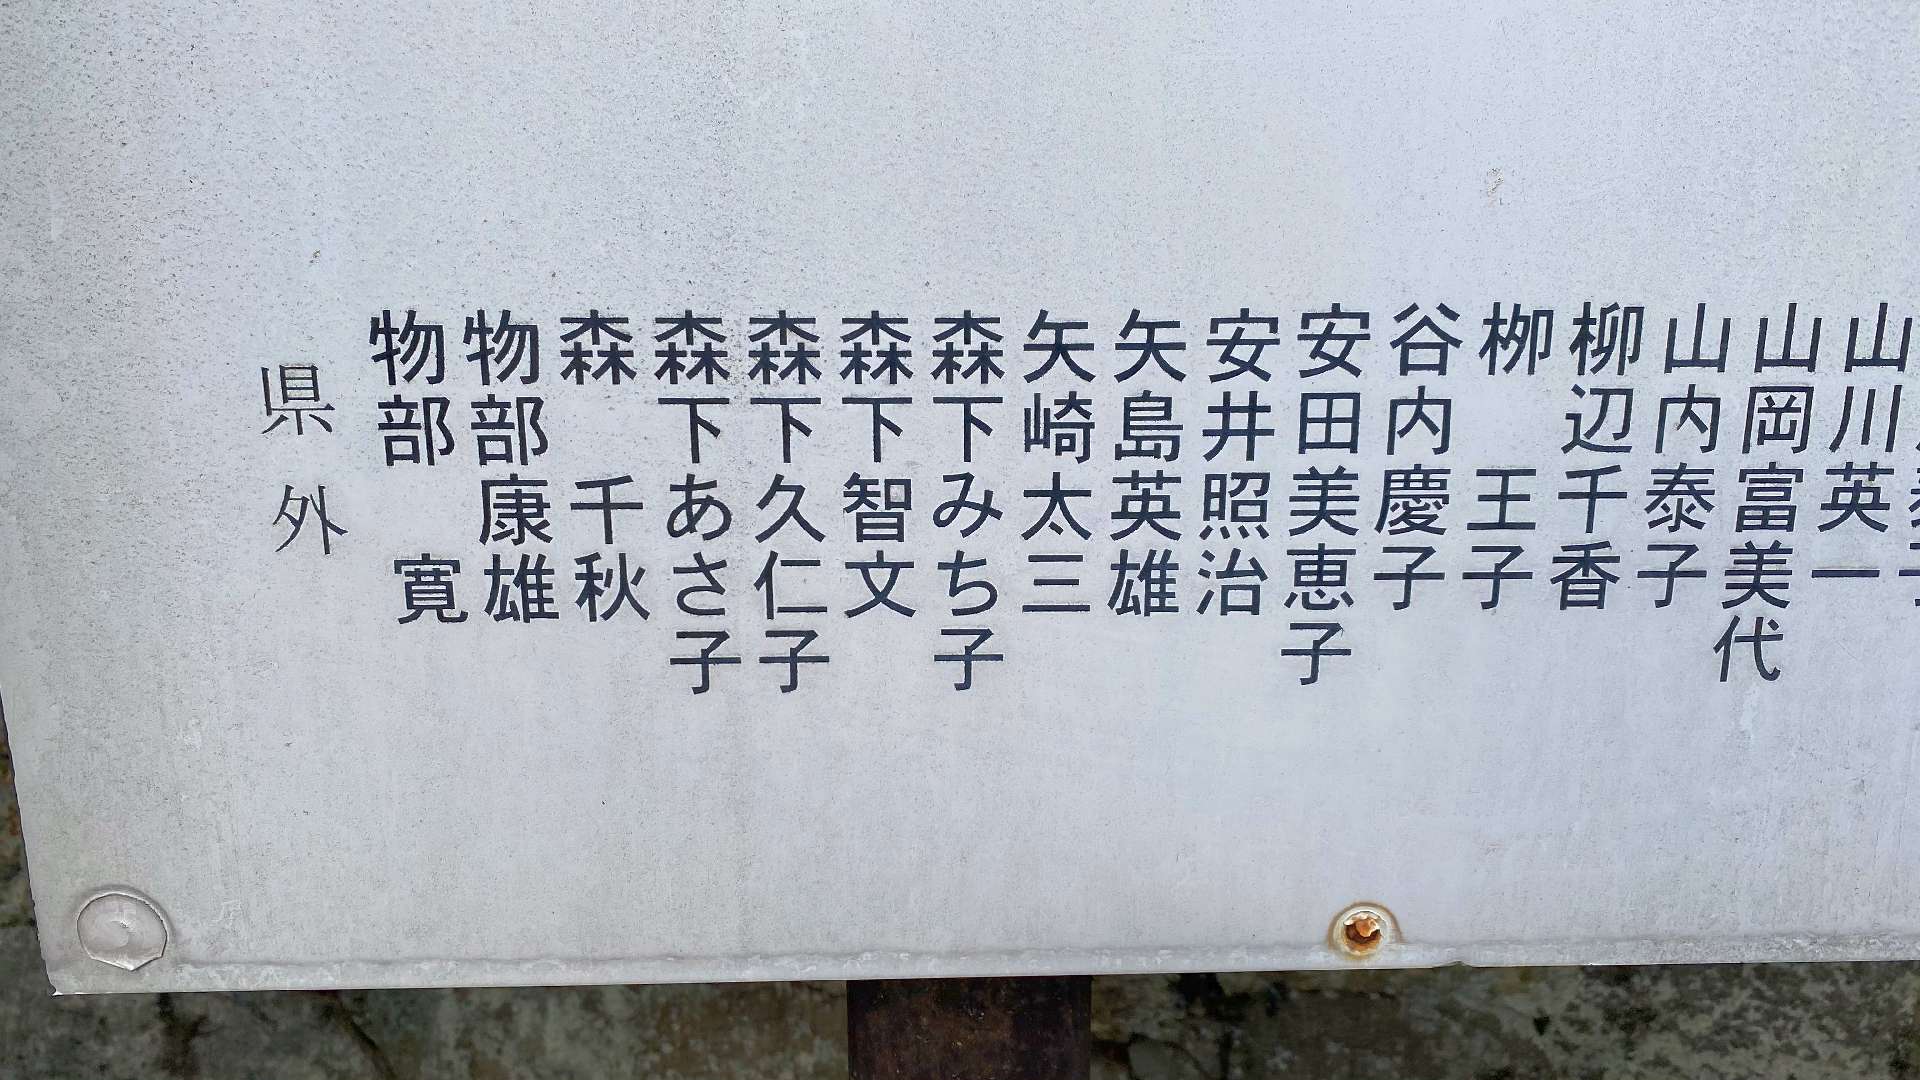 山川英一
山岡富美代
山内泰子
柳辺千香
栁王子
谷内慶子
安田美恵子
安井照治
矢島英雄
矢崎太三
森下みち子
森下智文
森下久仁子
森下あさ子
森千秋
物部康雄
物部寛
県外